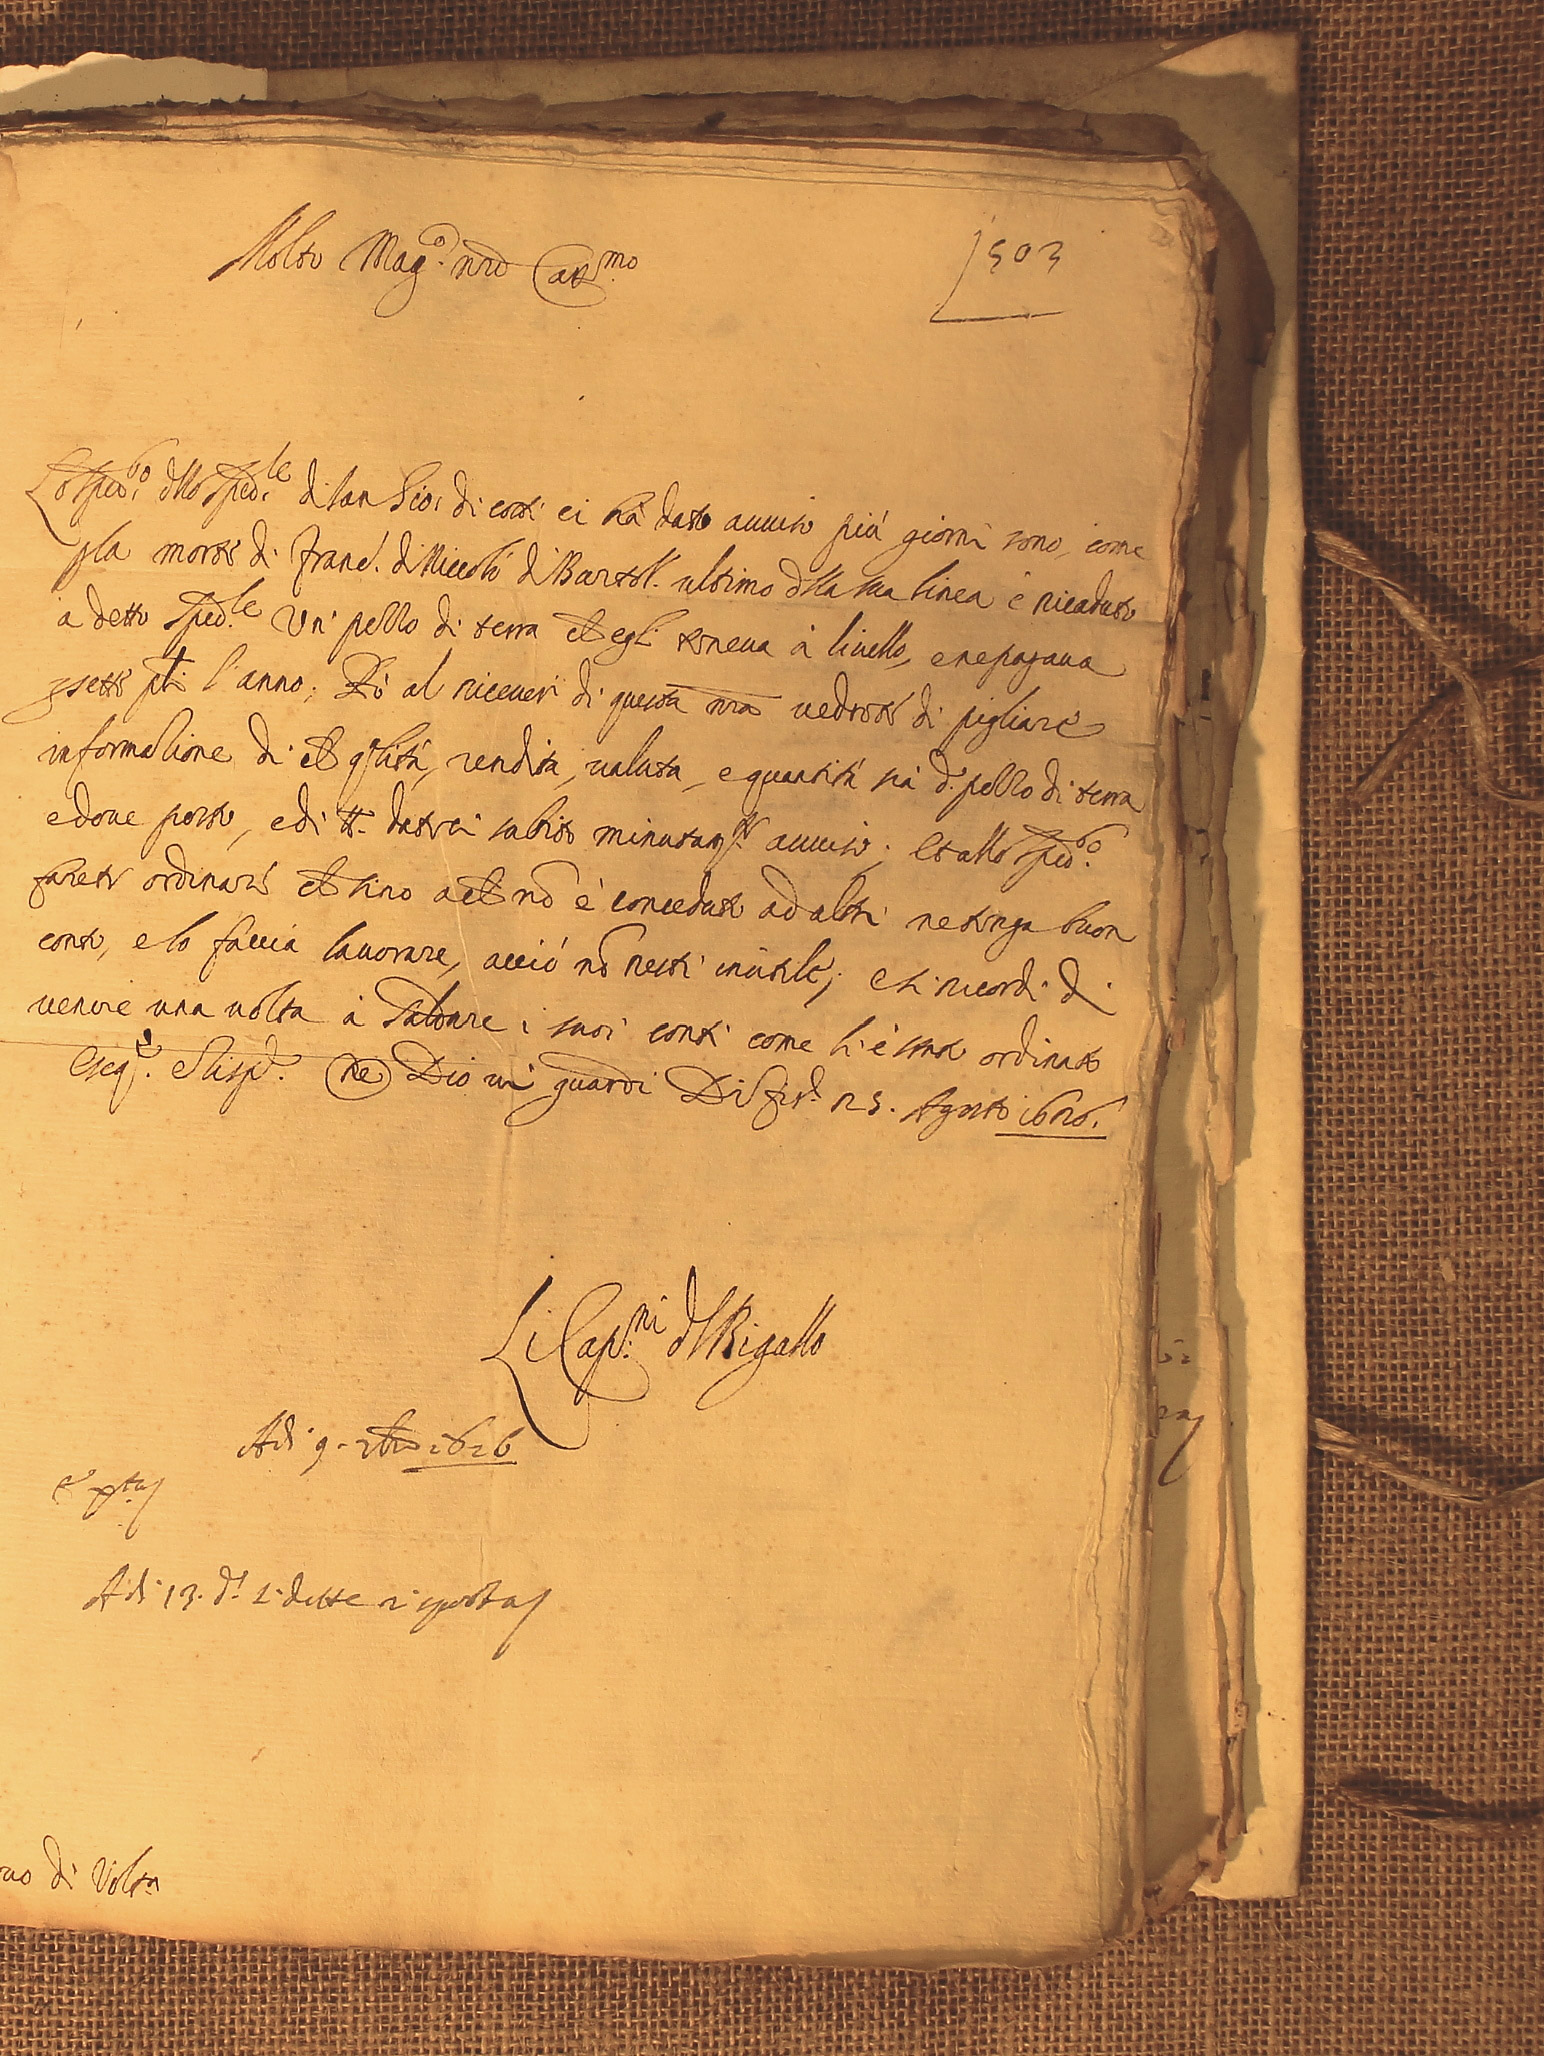 Molto Mag.co nro Car.mo
1503
Lo sped.go dllo sped.le di san Gio: di costi ci ha dato auuiso più giorni sono, come
pla morte di Franc.o di Niccolò di Bartol.o ultimo della sua linea è ricaduto
a detto sped.le un pezzo di terra ch egli teneua à liuello, e ne pagaua
l'anno; Pò al riceuer di questa nra uedrete di pigliare
informazione di che qlità, rendita, ualuta, e quantità sia d.o pezzo di terra
e doue posto, e di tt.o datrci subito minutam.te auuiso; et allo sped.go
farete ordinare che sino a che nō è conceduto ad altri ne tenga buon
conto, e lo faccia lauorare, acciò nō resti inutile; e si ricordi di
uenire una uolta à saldare i suoi conti come li è stato ordinato
Dio ui guardi Di Fir.e 25. Agosto 1626.
Li Cap.ni dl Bigallo
Adi 9. 7bre 1626
Adi 13. d.o si dette risposta
di Volta